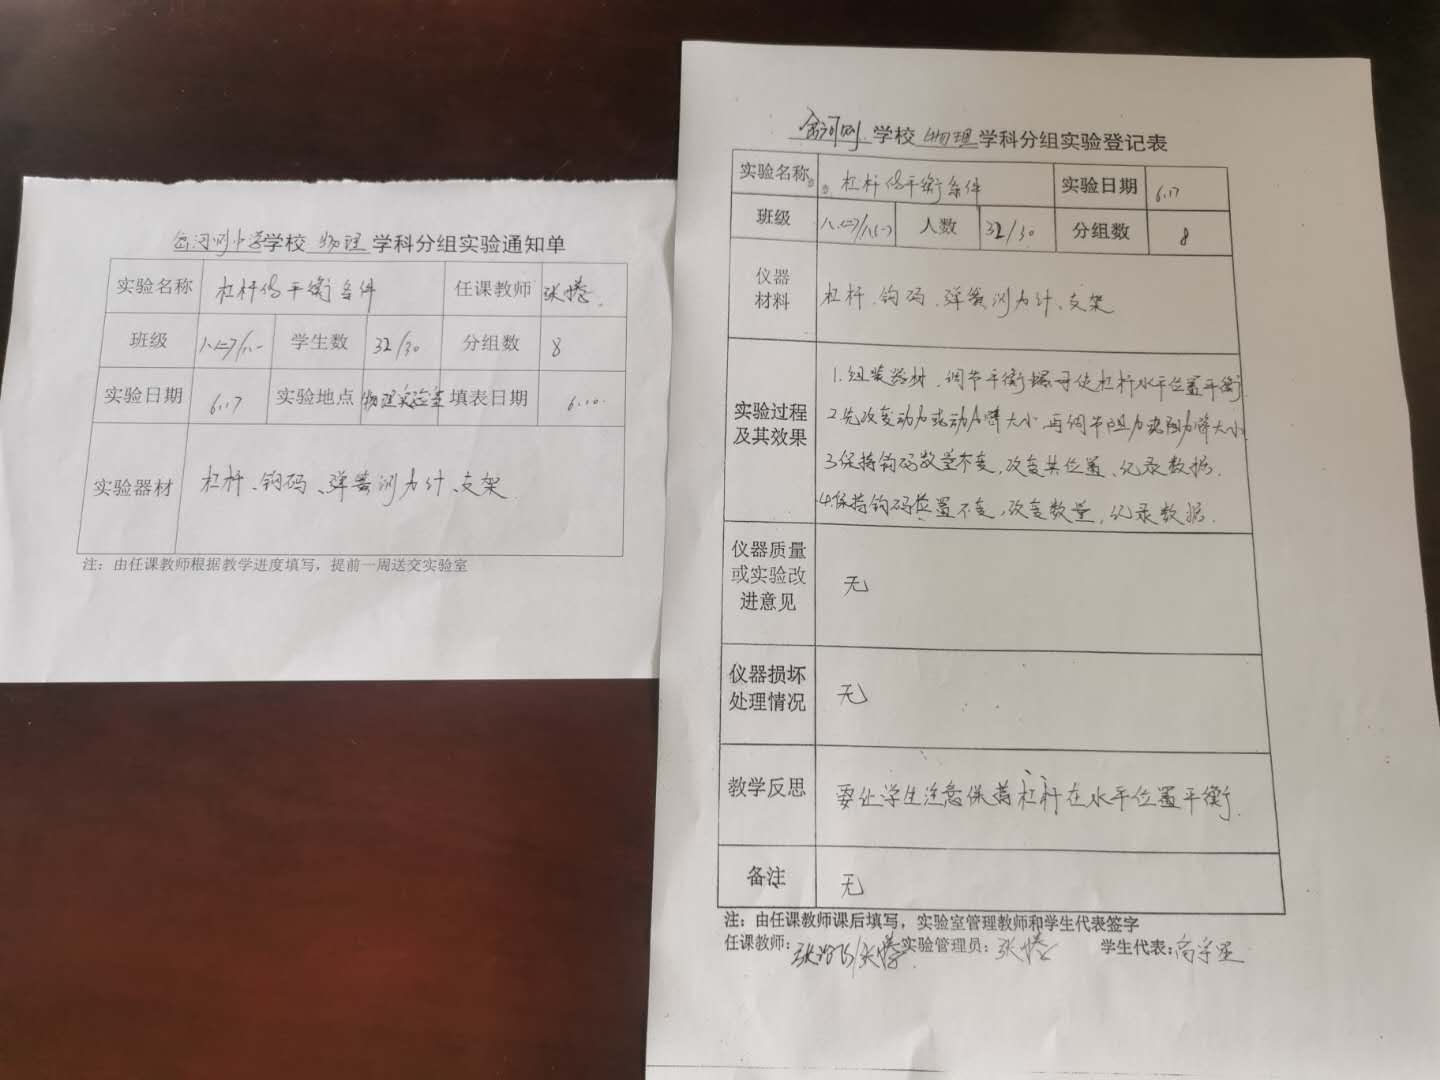 学校 物理 学科分组实验通知单
实验名称 杠杆的平衡条件 任课教师 张
班级 八.(二)/八.一 学生数 32/30 分组数 8
实验日期 6.17 实验地点 物理实验室 填表日期 6.10.
实验器材 杠杆、钩码、弹簧测力计、支架.
注：由任课教师根据教学进度填写，提前一周送交实验室
学校 物理 学科分组实验登记表
实验名称 杠杆的平衡条件 实验日期 6.17
班级 八.(二)/八(一) 人数 32/30 分组数 8
仪器
材料
杠杆、钩码、弹簧测力计、支架
实验过程
及其效果
1.组装器材，调节平衡螺母使杠杆水平位置平衡.
2.先改变动力或动力臂大小，再调节阻力或阻力臂大小.
3.保持钩码数量不变，改变其位置、记录数据.
4.保持钩码位置不变，改变数量，记录数据.
仪器质量
或实验改
进意见
无
仪器损坏
处理情况
无
教学反思 要让学生注意保持杠杆在水平位置平衡.
备注 无
注：由任课教师课后填写，实验室管理教师和学生代表签字
任课教师: 张 实验管理员: 张 学生代表: 高